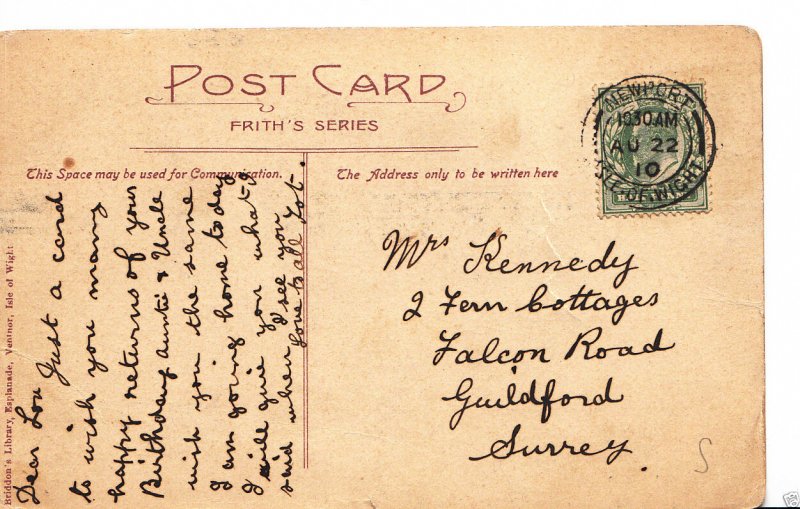 POST CARD
FRITH'S SERIES
This Space may be used for Communication.
The Address only to be written here
NEWPORT
10 30 AM
AU 22
10
ISLE-OF-WIGHT
Dear Lou Just a card
to wish you many
happy returns of your
Birthday Auntie & Uncle
wish you the same
I am going home today
I will give you what
said when I see you
love to all Tot.
Mrs Kennedy
2 Fern Cottages
Falcon Road
Guildford
Surrey
S
Briddon's Library, Esplanade, Ventnor, Isle of Wight